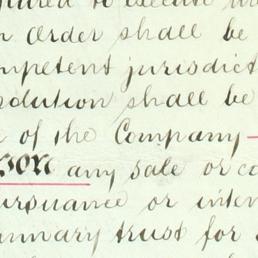 order shall be
mpetent jurisdict
solution shall be
of the Company
son any sale or co
ursuance or inter
mmary trust for